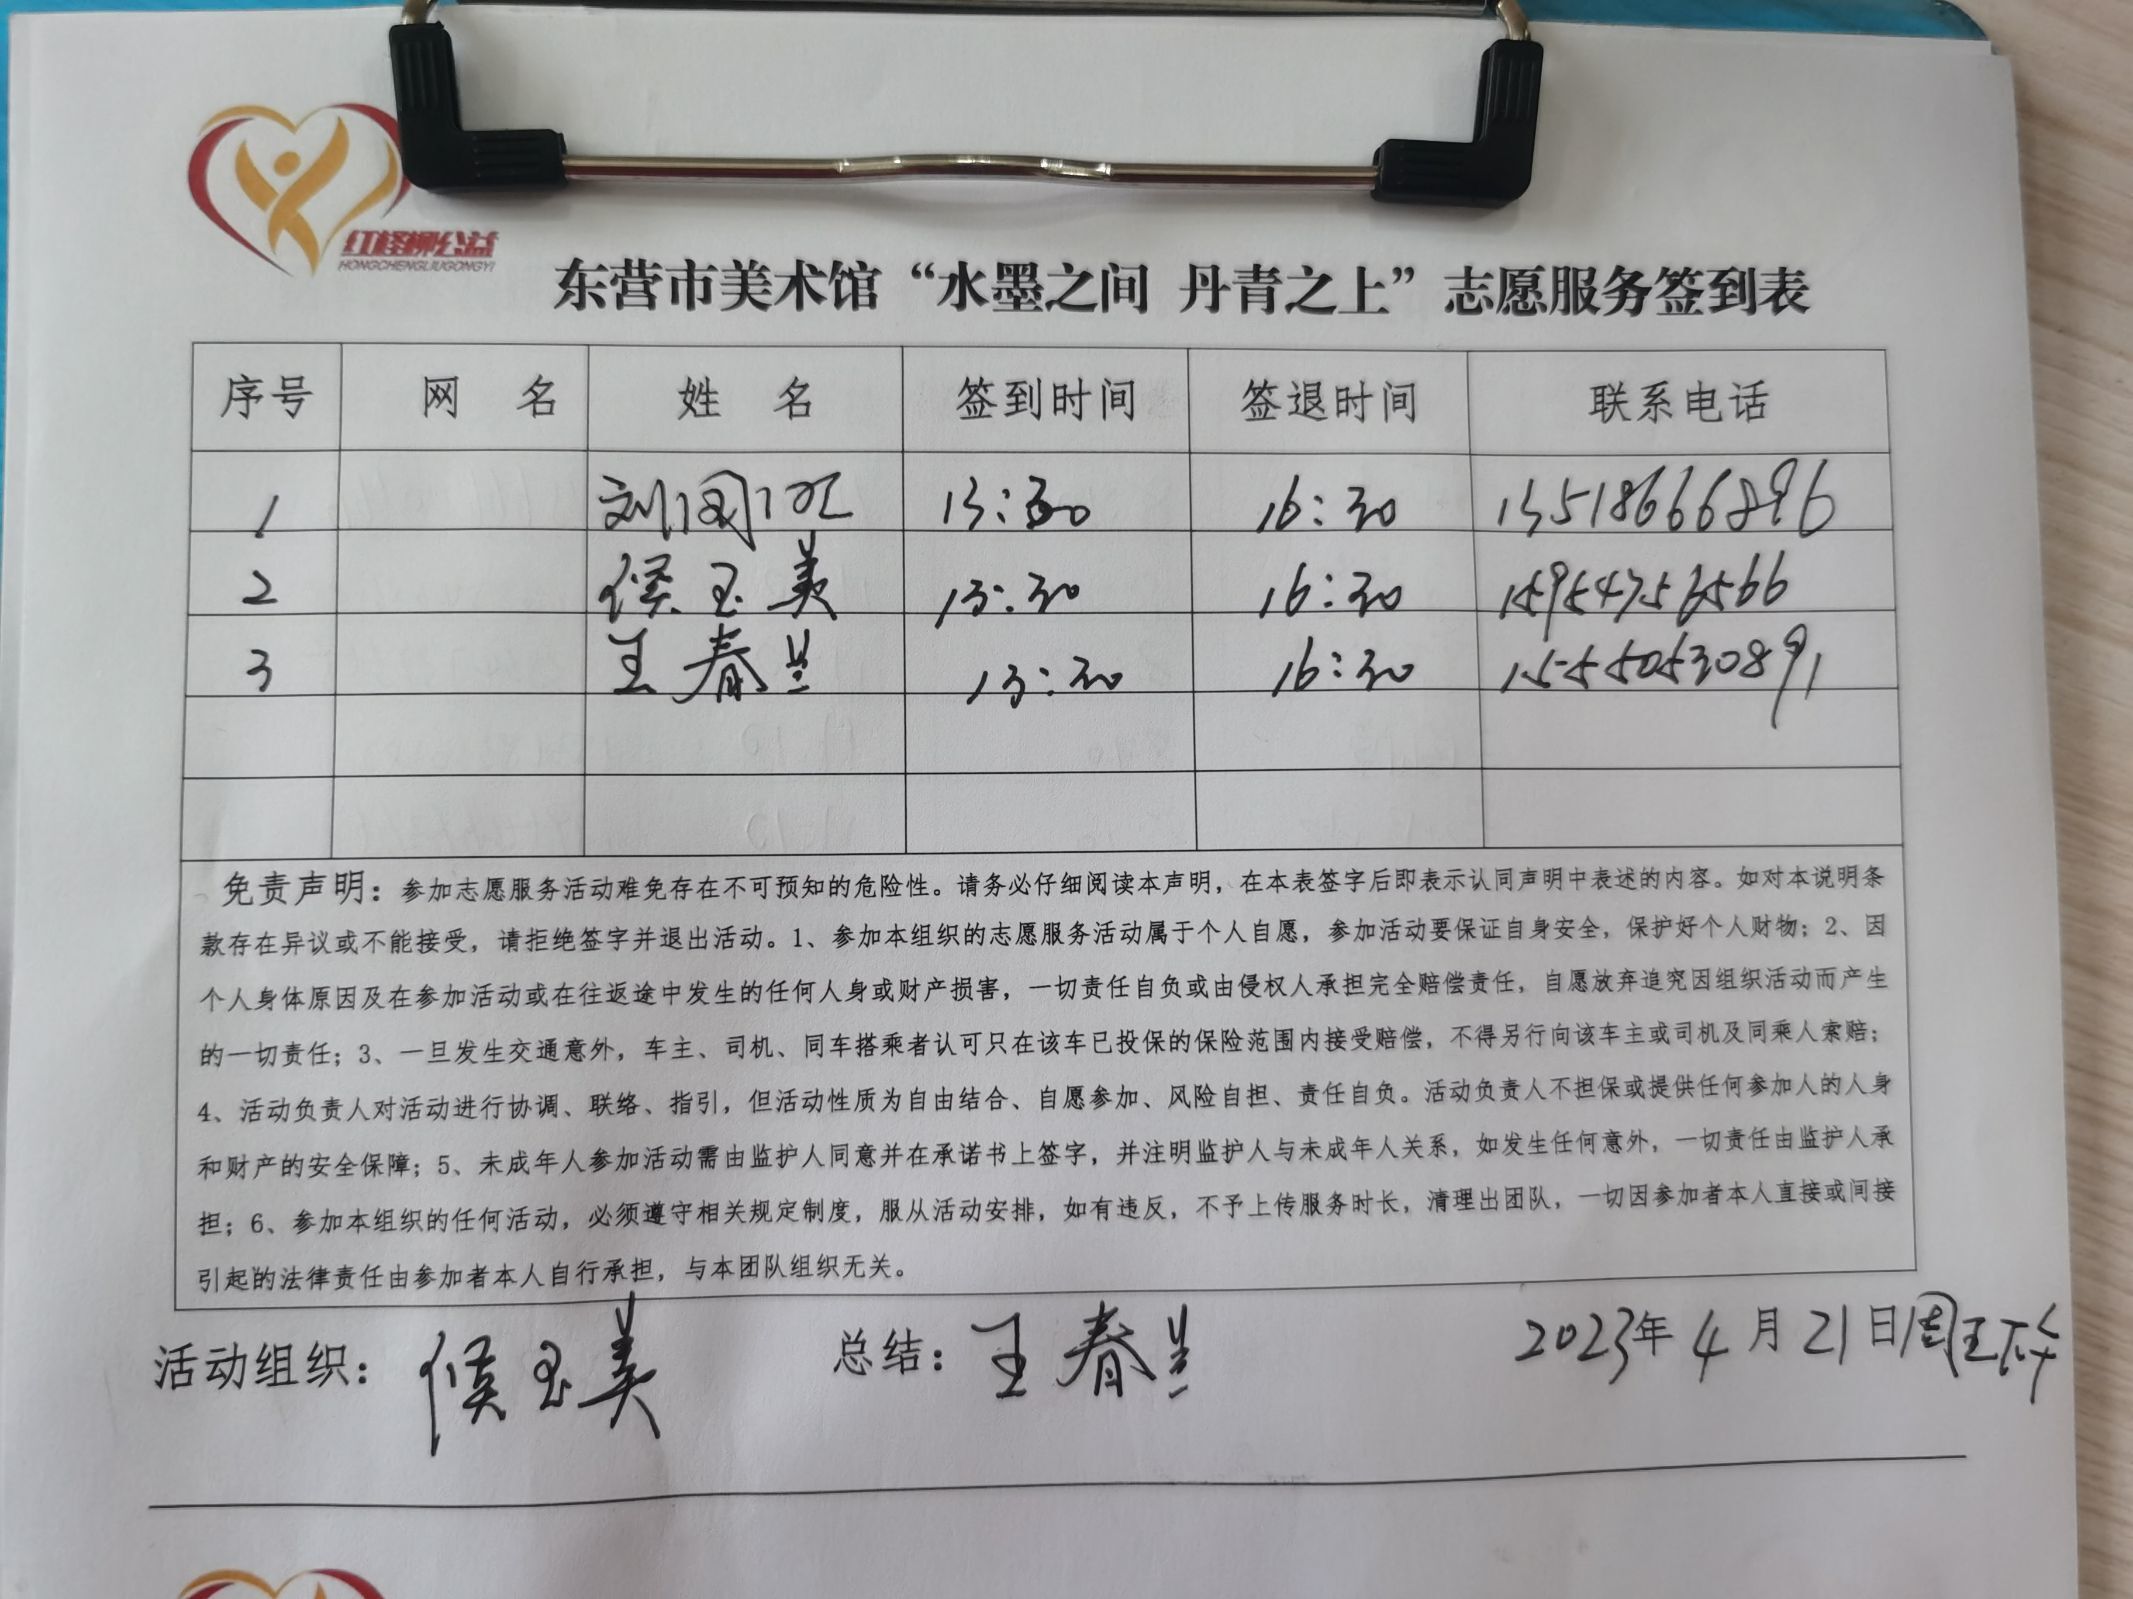 红柽柳公益
HONGCHENGLIUGONGYI
东营市美术馆“水墨之间 丹青之上”志愿服务签到表
序号 网 名 姓 名 签到时间 签退时间 联系电话
1 刘 13:30 16:30 13518666896
2 侯玉美 13:30 16:30
3 王春兰 13:30 16:30 15550530891
免责声明：参加志愿服务活动难免存在不可预知的危险性。请务必仔细阅读本声明，在本表签字后即表示认同声明中表述的内容。如对本说明条
款存在异议或不能接受，请拒绝签字并退出活动。1、参加本组织的志愿服务活动属于个人自愿，参加活动要保证自身安全，保护好个人财物；2、因
个人身体原因及在参加活动或在往返途中发生的任何人身或财产损害，一切责任自负或由侵权人承担完全赔偿责任，自愿放弃追究因组织活动而产生
的一切责任；3、一旦发生交通意外，车主、司机、同车搭乘者认可只在该车已投保的保险范围内接受赔偿，不得另行向该车主或司机及同乘人索赔；
4、活动负责人对活动进行协调、联络、指引，但活动性质为自由结合、自愿参加、风险自担、责任自负。活动负责人不担保或提供任何参加人的人身
和财产的安全保障；5、未成年人参加活动需由监护人同意并在承诺书上签字，并注明监护人与未成年人关系，如发生任何意外，一切责任由监护人承
担；6、参加本组织的任何活动，必须遵守相关规定制度，服从活动安排，如有违反，不予上传服务时长，清理出团队，一切因参加者本人直接或间接
引起的法律责任由参加者本人自行承担，与本团队组织无关。
活动组织：侯玉美 总结：王春兰 2023年4月21日周五下午